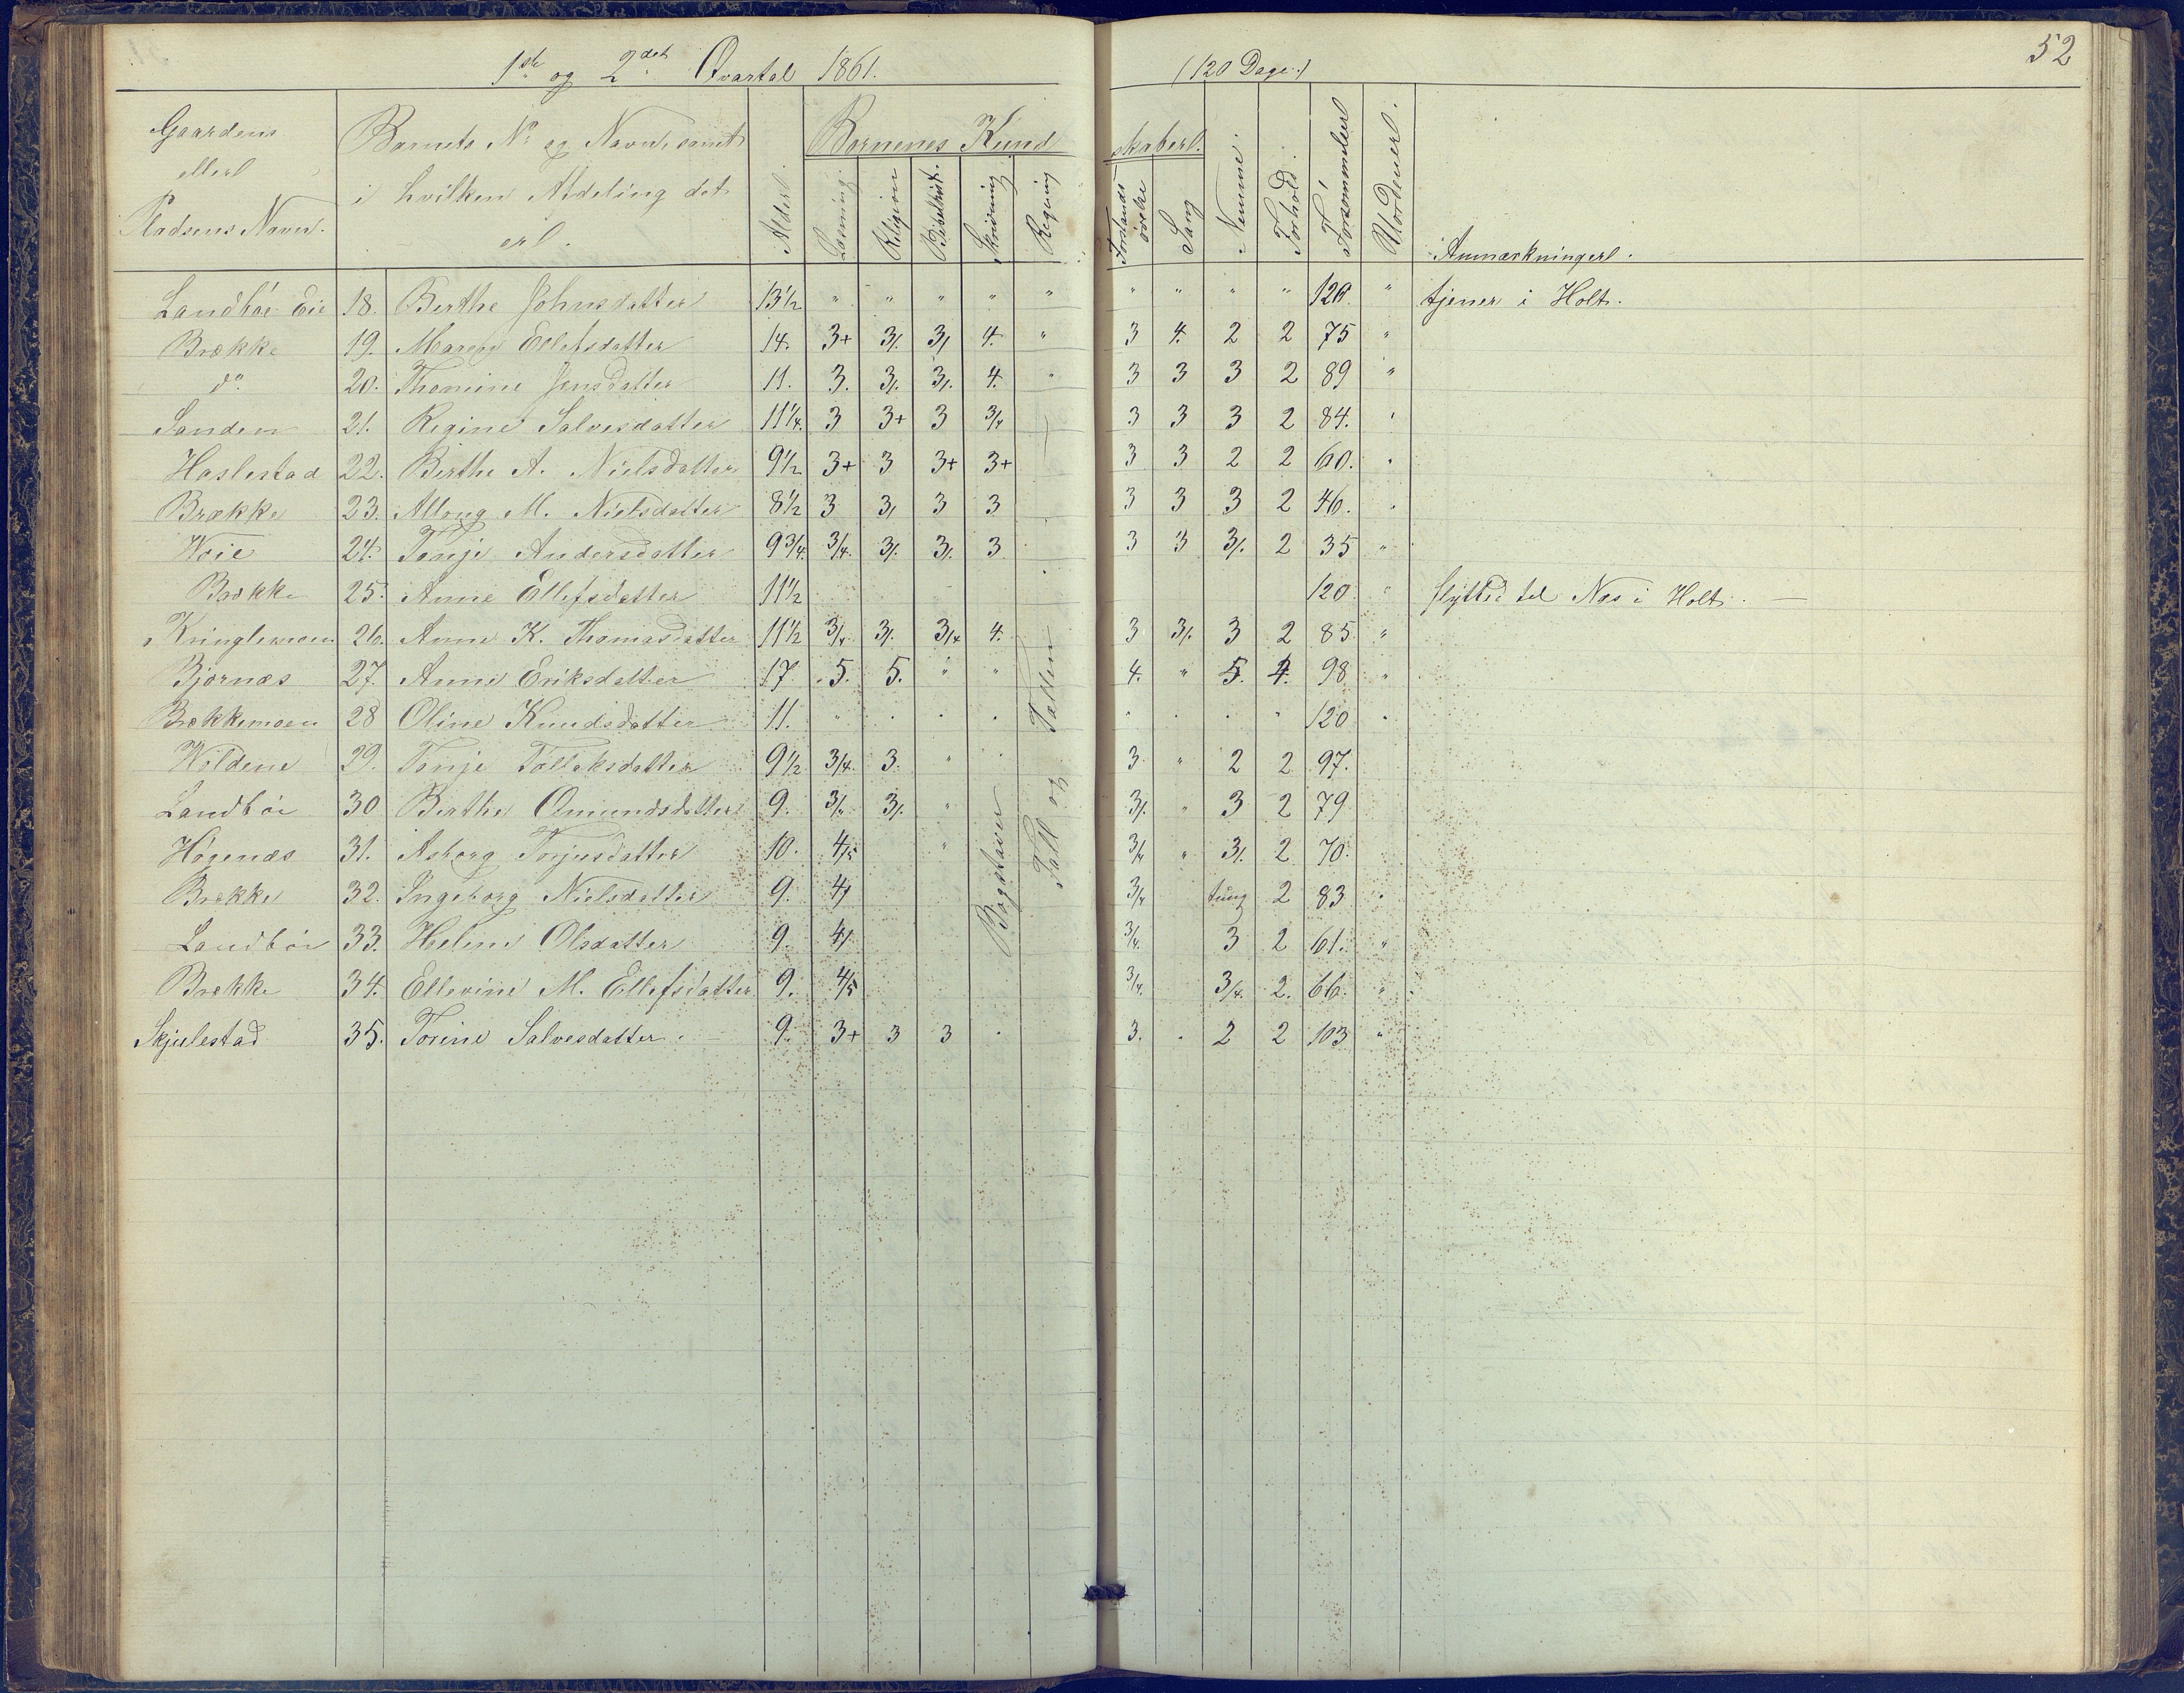 52
1ste og 2det Qvartal 1861. (120 Dage.)
Gaardens eller Pladsens Navn. | Barnets No og Navn, samt i hvilken Afdeling det er. | Alder. | Børnenes Kundskaber. | Nemme. | Forhold. | Forsømmelser | Uordener. | Anmærkninger.
Læsning. | Religion | Bibelhist. | Skrivning | Regning | Forstandsøvelse | Sang
Landbøe Eie 18. Berthe Johnsdatter 13½ " " " " " " " " " 120. " tjener i Holt.
Brække 19. Maren Ellefsdatter 14. 3+ 3/. 3/ 4. " 3 4. 2 2 75 "
do. 20. Thomine Jensdatter 11. 3. 3/. 3/. 4. " 3 3 3 2 89 "
Sanden 21. Regine Salvesdatter 11¼. 3 3+ 3 3/4 3 3 3 2 84.
Haslestad 22. Berthe A. Nielsdatter 9½ 3+ 3 3+ 3+ 3 3 2 2 60.
Brække 23. M. Nielsdatter 8½ 3 3/ 3 3 3 3 3 2 46.
24. Tonje Andersdatter 9¾. 3/4. 3/. 3/. 3 3 3 3/. 2 35 "
Brække 25. Anne Ellefsdatter 11½ 120 " flyttet til Næs i Holt. —
Kringlemoen 26. Anne K. Thomasdatter 11½ 3/4 3/. 3/4 4. 3 3/. 3 2 85 "
Bjørnæs 27. Anne Eriksdatter 17 5. 5. " " 4. " 5. 4. 98 "
Brækkemoen 28 Oline Knudsdatter 11. " 120
Holdene 29. Tonje Tollaksdatter 9½ 3/4. 3. " 3. " 2 2 97.
Landbøe 30 Berthe Omundsdatter 9. 3/4 3/. " 3/. " 3 2 79
Høgenæs 31. Asborg Torjusdatter 10. 4/5 " 3/4 " 3/. 2 70.
Brække 32. Ingeborg Nielsdatter 9. 4/ 3/4 tung 2 83
Landbøe 33. Helene Olsdatter 9. 4/ 3/4. 3 2 61. "
Brække 34. Ellevine M. Ellefsdatter 9. 4/5 3/4. 3/4. 2. 66. "
Skjulestad 35. Torine Salvesdatter. 9. 3+ 3 3 3. 2 2 103 "
Bogstaver
Tall og Tabben